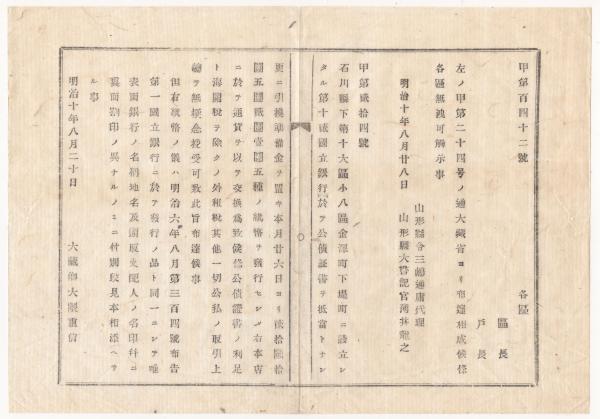 甲第百四十二號
各區
區長
戸長
左ノ甲第二十四号ノ通大藏省ヨリ布達相成候條
各區無洩可觸示事
山形縣令三島通庸代理
明治十年八月廿八日
山形縣大書記官薄井龍之
甲第貳拾四號
石川縣下第十大區小八區金澤町下堤町ニ設立シ
タル第十貳國立銀行ニ於テ公債証書ヲ抵當トナシ
更ニ引換準備金ヲ置キ本月廿六日ヨリ
圓五圓貳圓壹圓五種ノ紙幣ヲ發行セシメ右本店
ニ於テ通貨ヲ以テ交換爲致候條公債證書ノ利足
ト海關税ヲ除クノ外租税其他一切公私ノ取引上
總テ無疑念授受可致此旨布達候事
但右紙幣ノ儀ハ明治六年八月第三百四號布告
第一國立銀行ニ於テ發行ノ品ト同一ニシテ唯
表面銀行ノ名稱地名及頭取支配人ノ名印并ニ
裏面割印ノ異ナルノミニ付別段見本相添ヘサ
ル事
明治十年八月二十日
大藏卿大隈重信